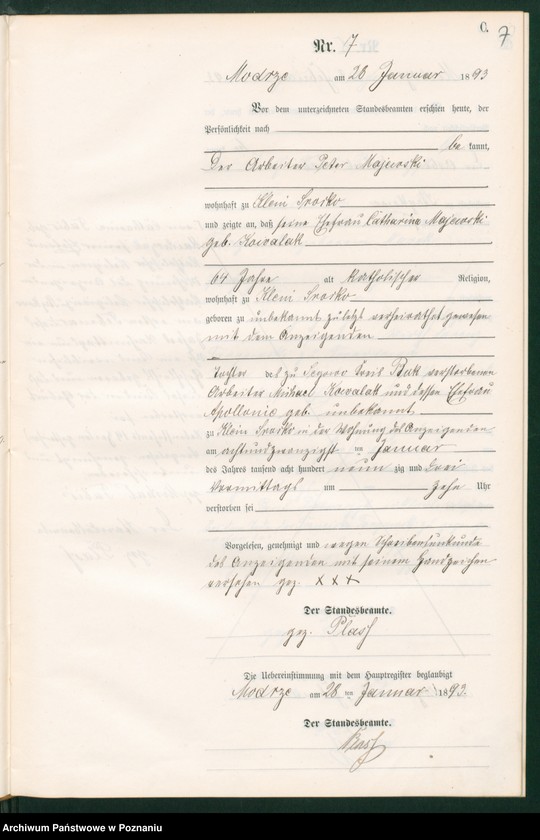 C.
7
Nr. 7
Modrze am 28 Januar 1893
Vor dem unterzeichneten Standesbeamten erschien heute, der
Persönlichkeit nach
be kannt,
Der Arbeiter Peter Majewski
wohnhaft zu Klein Srocko
und zeigte an, daß seine Ehefrau Catharina Majewski
geb. Kowalak
64 Jahre alt Katholischer Religion,
wohnhaft zu Klein Srocko
geboren zu unbekannt zuletzt verheirathet gewesen
mit dem Anzeigenden
Tochter des zu Kreis Buk verstorbenen
Arbeiter Michael Kowalak und dessen Ehefrau
Apollonie geb. unbekannt
zu Klein Srocko in der Wohnung des Anzeigenden
am achtundzwanzigsten ten Januar
des Jahres tausend acht hundert neun zig und drei
Vormittags um Zehn Uhr
verstorben sei
Vorgelesen, genehmigt und wegen Schreibensunkunde
des Anzeigenden mit seinem Handzeichen
versehen gez. x x x
Der Standesbeamte.
gez. Plash
Die Uebereinstimmung mit dem Hauptregister beglaubigt
Modrze am 28 ten Januar 1893.
Der Standesbeamte.
Plash
Archiwum Państwowe w Poznaniu